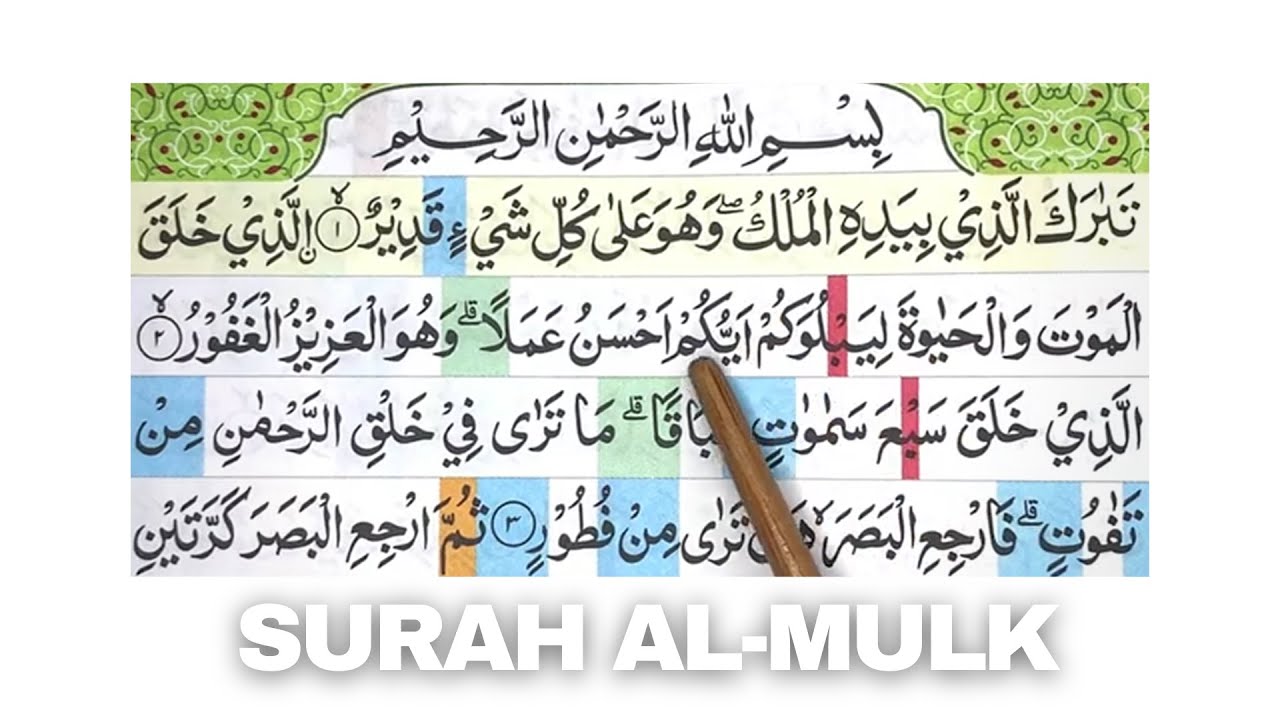 بِسْمِ اللهِ الرَّحْمٰنِ الرَّحِيْمِ
تَبٰرَكَ الَّذِيْ بِيَدِهِ الْمُلْكُ ۖ وَهُوَ عَلٰى كُلِّ شَيْءٍ قَدِيْرٌ ۙ ١ ۨالَّذِيْ خَلَقَ
الْمَوْتَ وَالْحَيٰوةَ لِيَبْلُوَكُمْ اَيُّكُمْ اَحْسَنُ عَمَلًا ۗ وَهُوَ الْعَزِيْزُ الْغَفُوْرُ ۙ ٢
الَّذِيْ خَلَقَ سَبْعَ سَمٰوٰتٍ ۗ مَا تَرٰى فِيْ خَلْقِ الرَّحْمٰنِ مِنْ
تَفٰوُتٍ ۗ فَارْجِعِ الْبَصَرَ تَرٰى مِنْ فُطُوْرٍ ٣ ثُمَّ ارْجِعِ الْبَصَرَ كَرَّتَيْنِ
SURAH AL-MULK